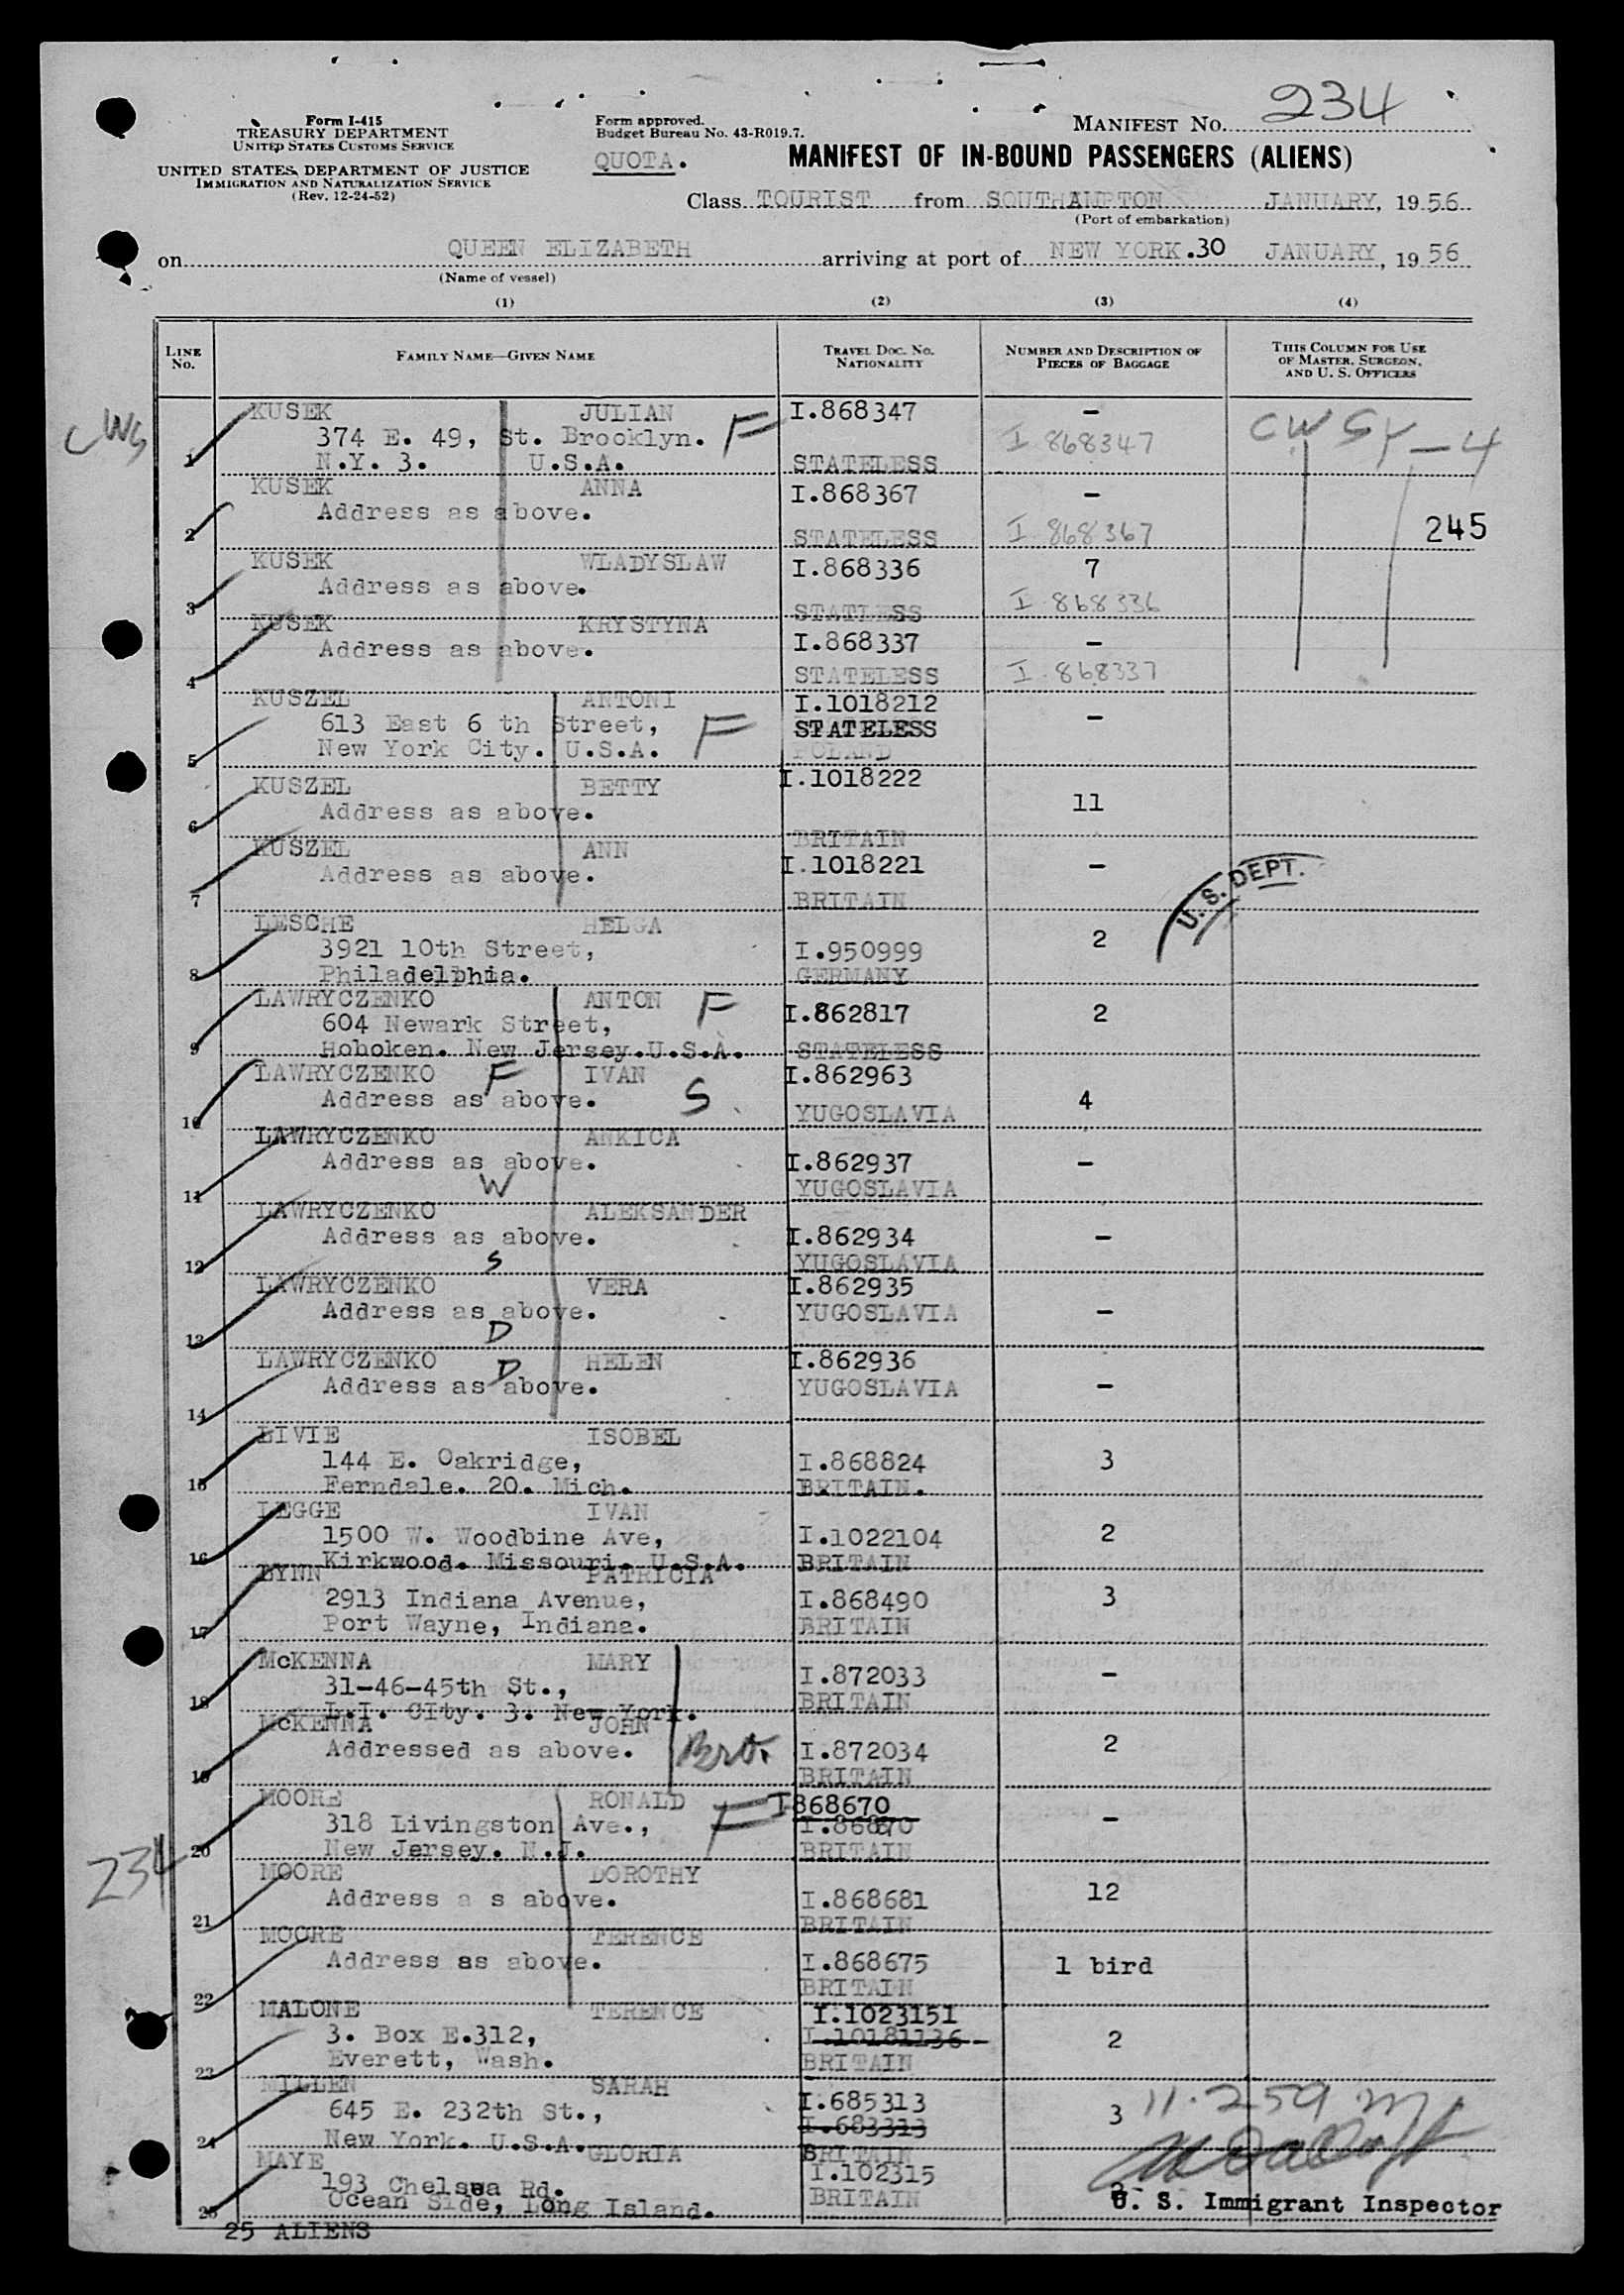 234
Form I-415
TREASURY DEPARTMENT
UNITED STATES CUSTOMS SERVICE
UNITED STATES DEPARTMENT OF JUSTICE
IMMIGRATION AND NATURALIZATION SERVICE
(Rev. 12-24-52)
Form approved.
Budget Bureau No. 43-R019.7.
MANIFEST No.
QUOTA.
MANIFEST OF IN-BOUND PASSENGERS (ALIENS)
Class TOURIST from SOUTHAMPTON JANUARY, 1956
(Port of embarkation)
on QUEEN ELIZABETH arriving at port of NEW YORK.30 JANUARY, 1956
(Name of vessel)
(1) (2) (3) (4)
LINE No. FAMILY NAME—GIVEN NAME TRAVEL DOC. No. NATIONALITY NUMBER AND DESCRIPTION OF PIECES OF BAGGAGE THIS COLUMN FOR USE OF MASTER, SURGEON, AND U. S. OFFICERS
KUSEK JULIAN I.868347 –
CWS 374 E. 49, St. Brooklyn. F I 868347 CWSY-4
1 N.Y. 3. U.S.A. STATELESS
KUSEK ANNA I.868367 –
Address as above.
2 STATELESS I 868367 245
KUSEK WLADYSLAW I.868336 7
Address as above.
3 STATLESS I 868336
KUSEK KRYSTYNA I.868337 –
Address as above.
4 STATELESS I 868337
KUSZEL ANTONI I.1018212
613 East 6 th Street, F STATELESS –
5 New York City. U.S.A. POLAND
KUSZEL BETTY I.1018222
Address as above. 11
6 BRITAIN
KUSZEL ANN I.1018221 –
Address as above.
7 BRITAIN
U.S. DEPT.
LESCHE HELGA 2
3921 10th Street, I.950999
8 Philadelbhia. GERMANY
LAWRYCZENKO ANTON F I.862817 2
604 Newark Street,
9 Hoboken. New Jersey.U.S.A. STATELESS
LAWRYCZENKO F IVAN I.862963
Address as above. S 4
10 YUGOSLAVIA
LAWRYCZENKO ANKICA
Address as above. I.862937 –
11 W YUGOSLAVIA
LAWRYCZENKO ALEKSANDER
Address as above. I.862934 –
12 S YUGOSLAVIA
LAWRYCZENKO VERA I.862935
Address as above. YUGOSLAVIA –
13 D
LAWRYCZENKO D HELEN I.862936
Address as above. YUGOSLAVIA –
14
LIVIE ISOBEL
144 E. Oakridge, I.868824 3
15 Ferndale. 20. Mich. BRITAIN.
LEGGE IVAN
1500 W. Woodbine Ave, I.1022104 2
16 Kirkwood. Missouri. U.S.A. BRITAIN
LYNN PATRICIA
2913 Indiana Avenue, I.868490 3
17 Port Wayne, Indiana. BRITAIN
McKENNA MARY
31-46-45th St., I.872033 –
18 L.I. CIty. 3. New York. BRITAIN
McKENNA JOHN
Addressed as above. Bro. I.872034 2
19 BRITAIN
MOORE RONALD I868670
318 Livingston Ave., F I.86870 –
20 New Jersey. N.J. BRITAIN
234
MOORE DOROTHY
Address a s above. I.868681 12
21 BRITAIN
MOORE TERENCE
Address as above. I.868675 1 bird
22 BRITAIN
MALONE TERENCE I.1023151
3. Box E.312, I.10181136 2
23 Everett, Wash. BRITAIN
MILLEN SARAH I.685313
645 E. 232th St., I.683313 3
24 New York. U.S.A. BRITAIN
11.259
MAYE GLORIA I.102315
193 Chelsea Rd. BRITAIN
25 Ocean Side, Long Island. U. S. Immigrant Inspector
25 ALIENS